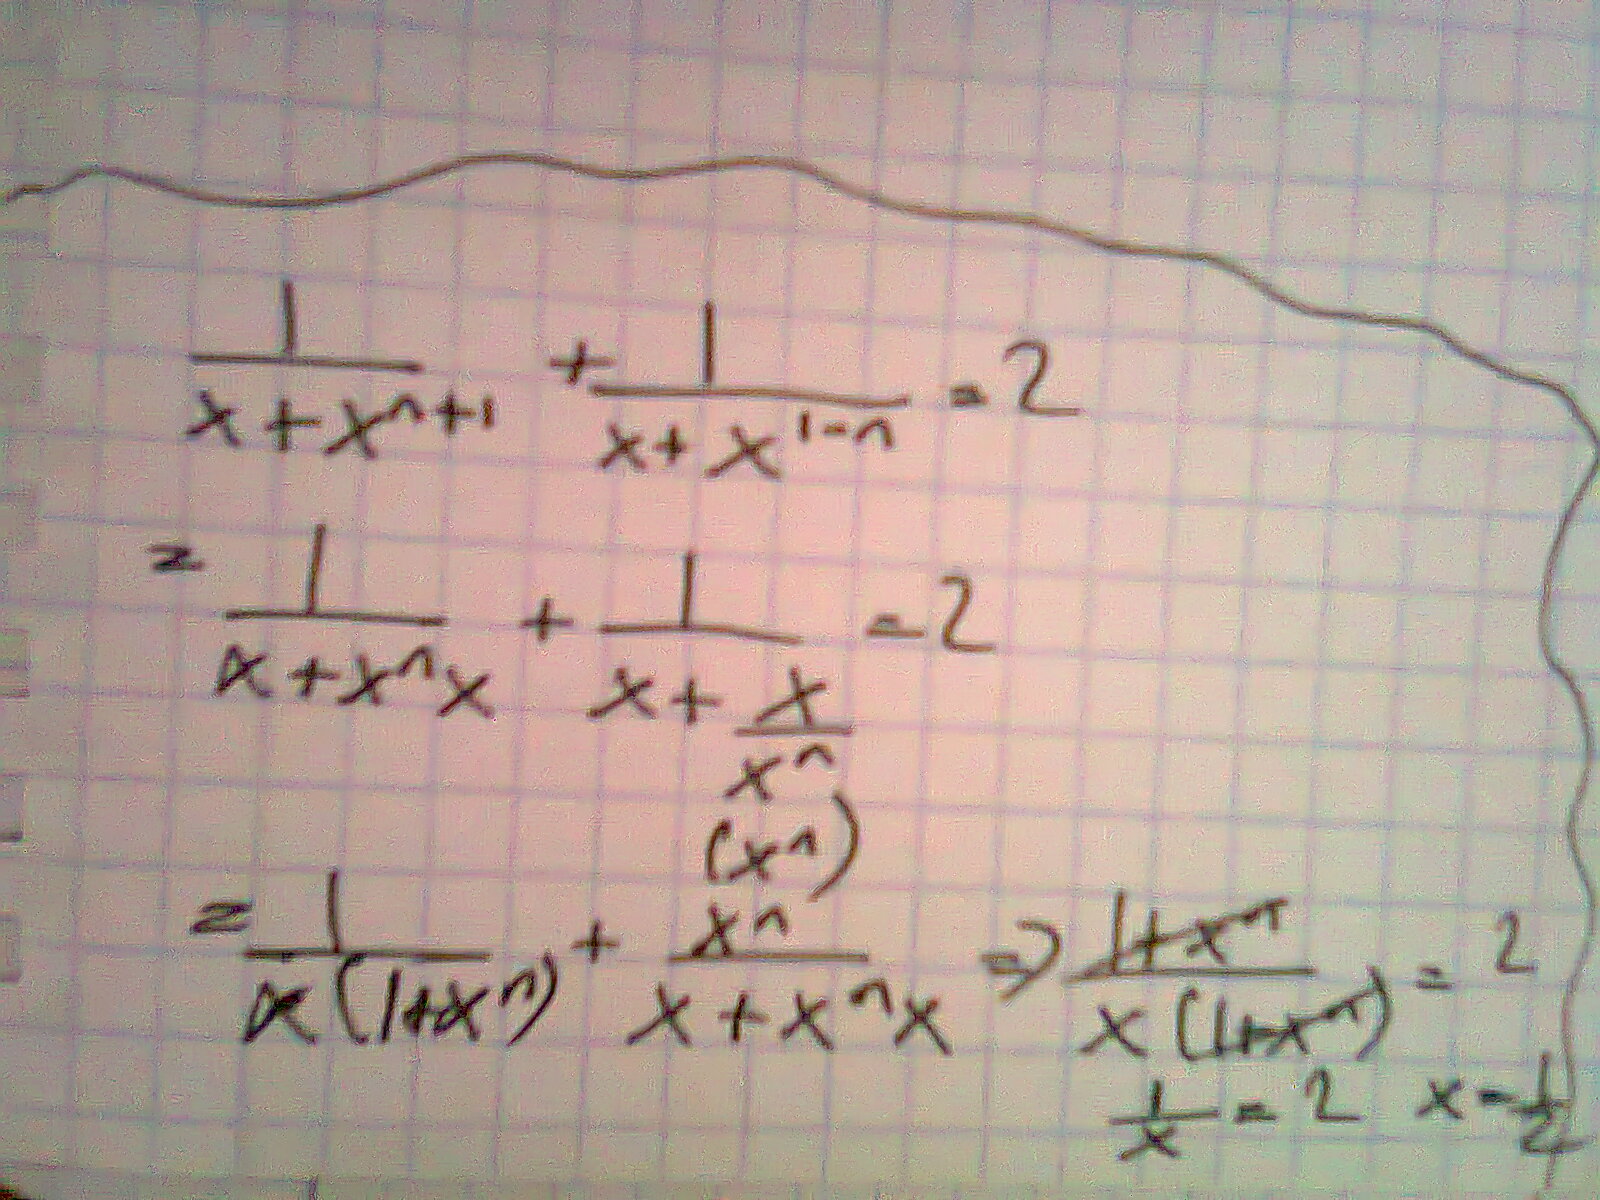 1/(x + x^(n+1)) + 1/(x + x^(1-n)) = 2
= 1/(x + x^n x) + 1/(x + x/x^n) = 2
(x^n)
= 1/(x(1+x^n)) + x^n/(x + x^n x) => (1+x^n)/(x(1+x^n)) = 2
1/x = 2 x = 1/2